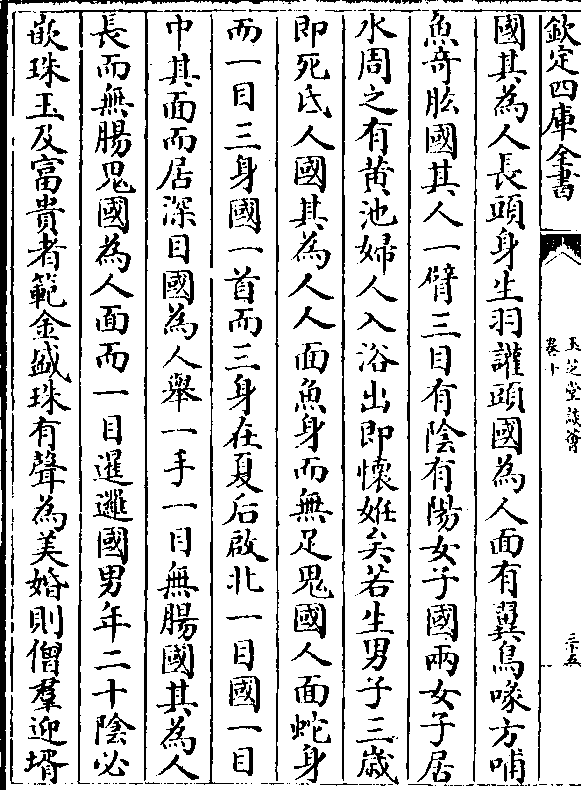 欽定四庫全書
玉芝堂談薈
卷十
三十五
國其為人長頭身生羽讙頭國為人面有翼鳥喙方哺
魚奇肱國其人一臂三目有陰有陽女子國兩女子居
水周之有黄池婦人入浴出即懷姙矣若生男子三歳
即死氐人國其為人人面魚身而無足鬼國人面蛇身
而一目三身國一首而三身在夏后啟北一目國一目
中其面而居深目國為人舉一手一目無腸國其為人
長而無腸鬼國為人面而一目暹邏國男年二十陰必
嵌珠玉及富貴者範金盛珠有聲為美婚則僧羣迎壻